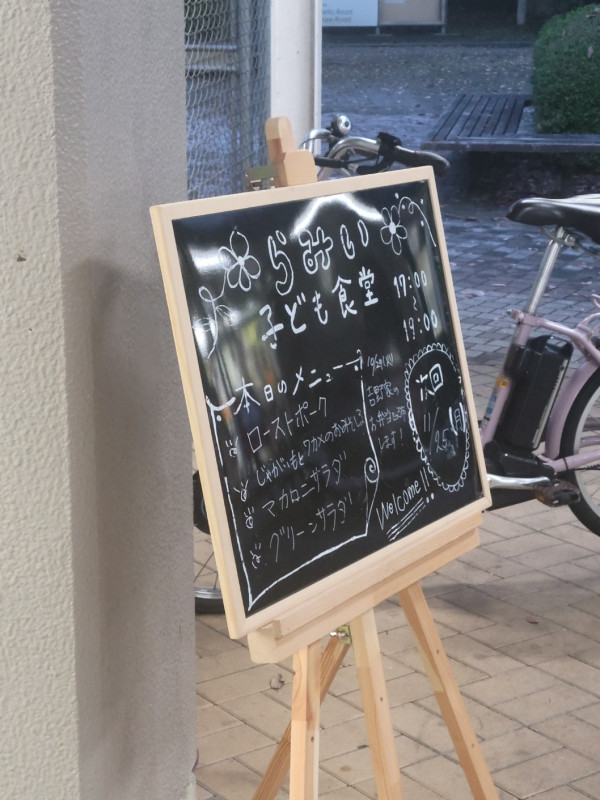 らみい
子ども食堂
17:00
〜
19:00
本日のメニュー
ローストポーク
じゃがいもとワカメのおみそしる
マカロニサラダ
グリーンサラダ
吉野家の
お弁当
します!
次回
11/25(月)
Welcome!!